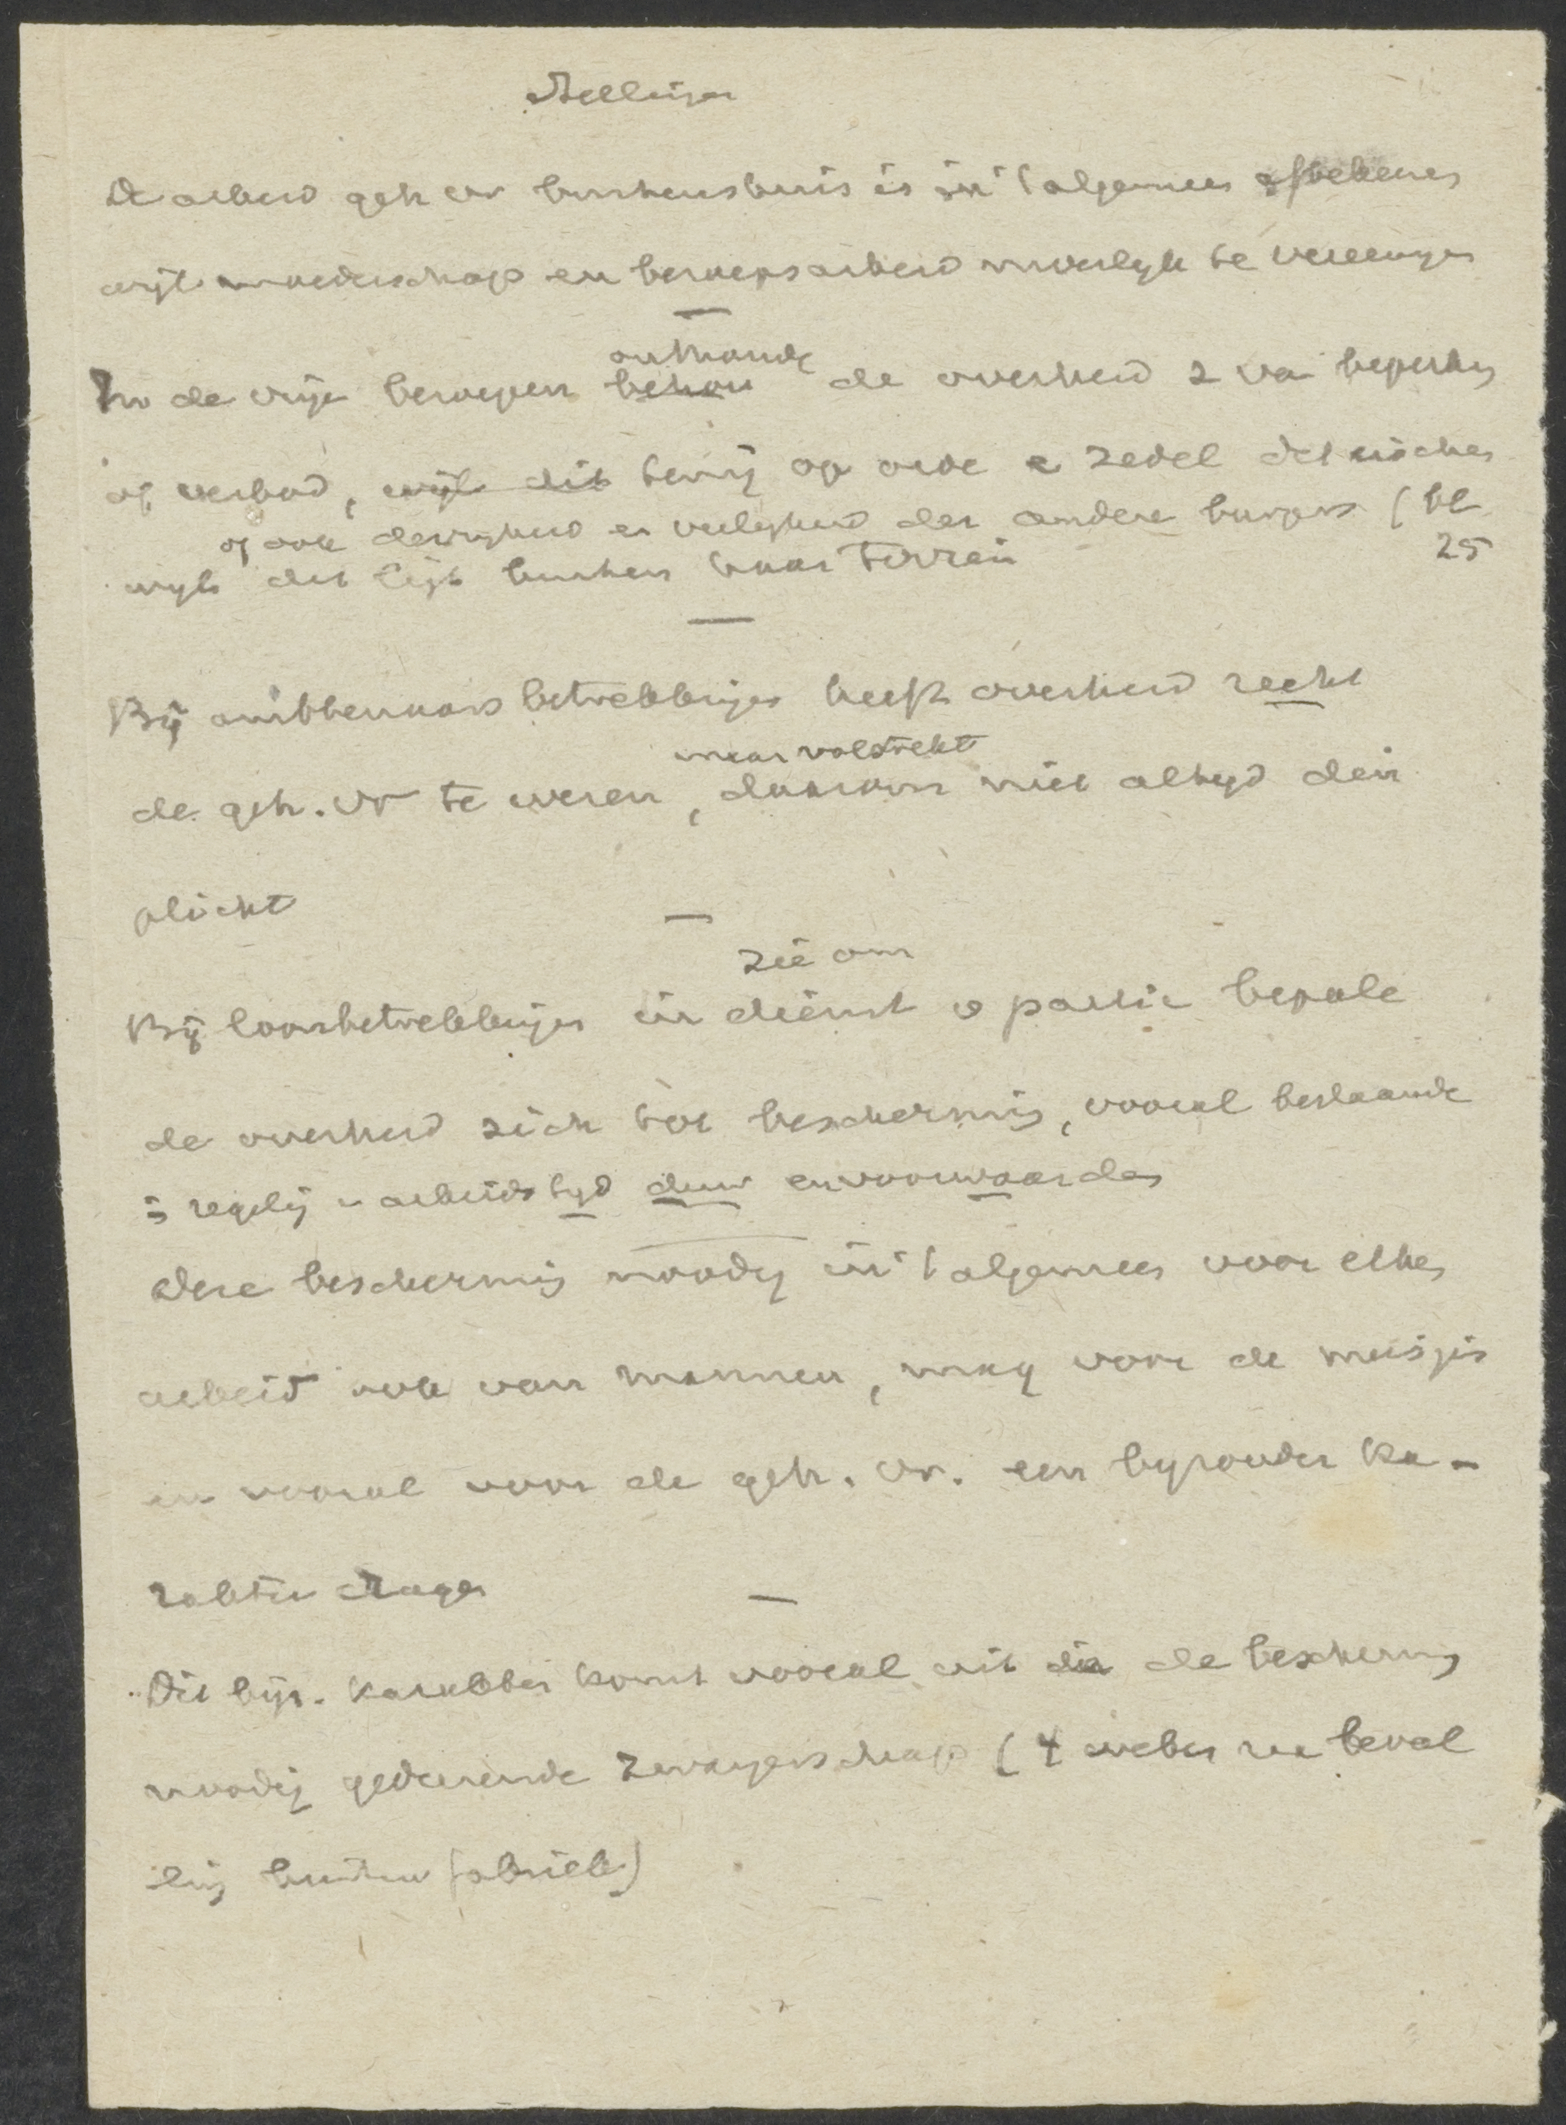 Stellingen
De arbeid geh vr buitenshuis is in 't algemeen af te keuren
wijl moederschap en beroepsarbeid moeilyk te vereenigen
onthoude
In de vrije beroepen behou de overheid z van beperking
of verbod, wijl dit tenzij op orde e zedel dit eischen
of ook de vryheid en veiligheid der andere burgers ( bl
wyl dit ligt buiten haar terrein 25
Bij ambtenaarsbetrekkingen heeft overheid recht
maar volstrekt
de geh. vr te weren, daarom niet altyd den
plicht
zie om
Bij loonsbetrekkingen in dienst v partic bepale
de overheid zich tot bescherming, vooral bestaande
i regelg v arbeidstyd duur en voorwaarden
Deze bescherming noodig in 't algemeen voor elken
arbeid ook van mannen, mag voor de meisjes
en vooral voor de geh. vr. een byzonder ka-
rakter dragen
Dit bijz. karakter komt vooral uit in de bescherming
noodig gedurende zwangerschap ( 4 weken na beval
ling buiten fabriek)